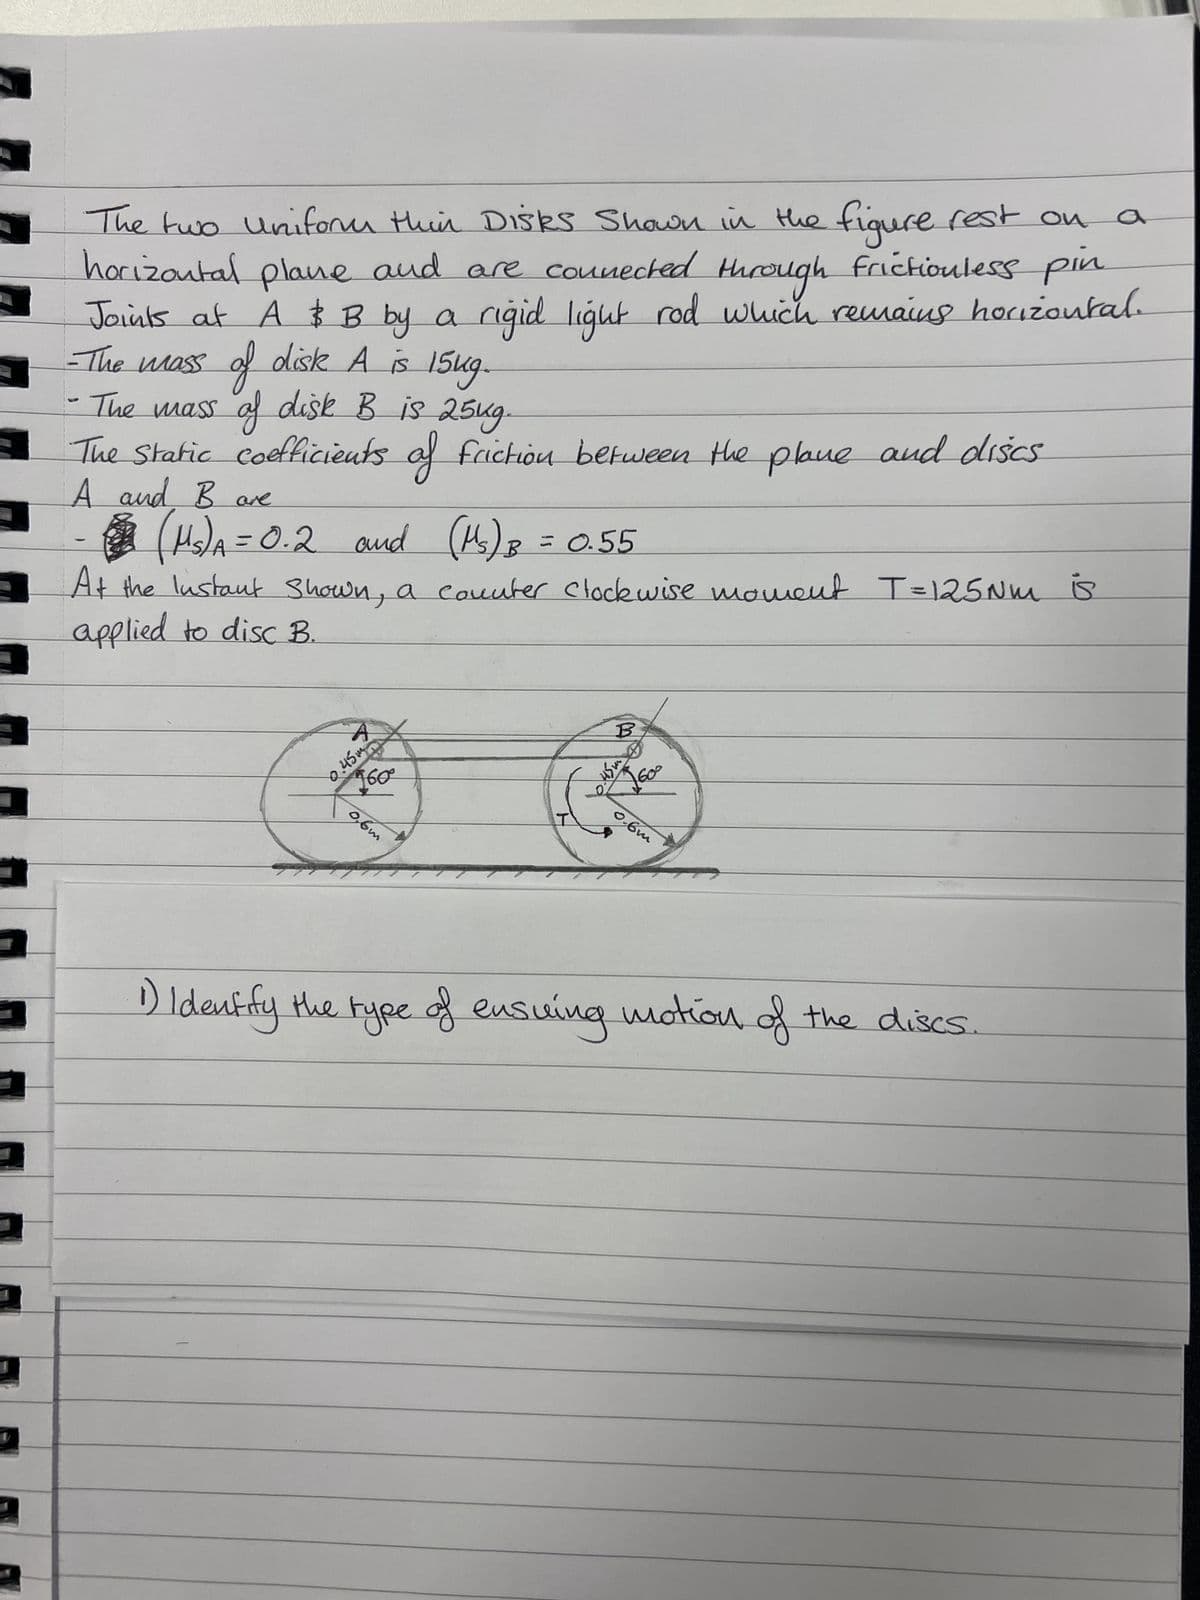 The two uniform thin Disks Shown in the figure rest on a
horizontal plane and are connected through frictionless pin
Joints at A & B by a rigid light rod which remains horizontal.
-The mass of disk A is 15kg.
- The mass of disk B is 25kg.
The Static coefficients of friction between the plane and discs
A and B are
- (μs)A = 0.2 and (μs)B = 0.55
At the Instant Shown, a counter clockwise moment T=125Nm is
applied to disc B.
A
B
0.45m
60°
0.45m
60°
0.6m
T
0.6m
1) Identify the type of ensueing motion of the discs.